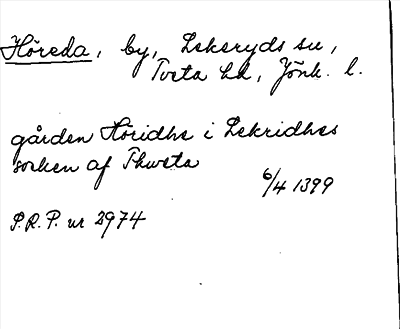 Höreda, by, Lekeryds sn,
Tveta hd, Jönk. l.
gården Höridhe i Lekridhes
sorken af Thweta
6/4 1399
P.R.P. nr 2974